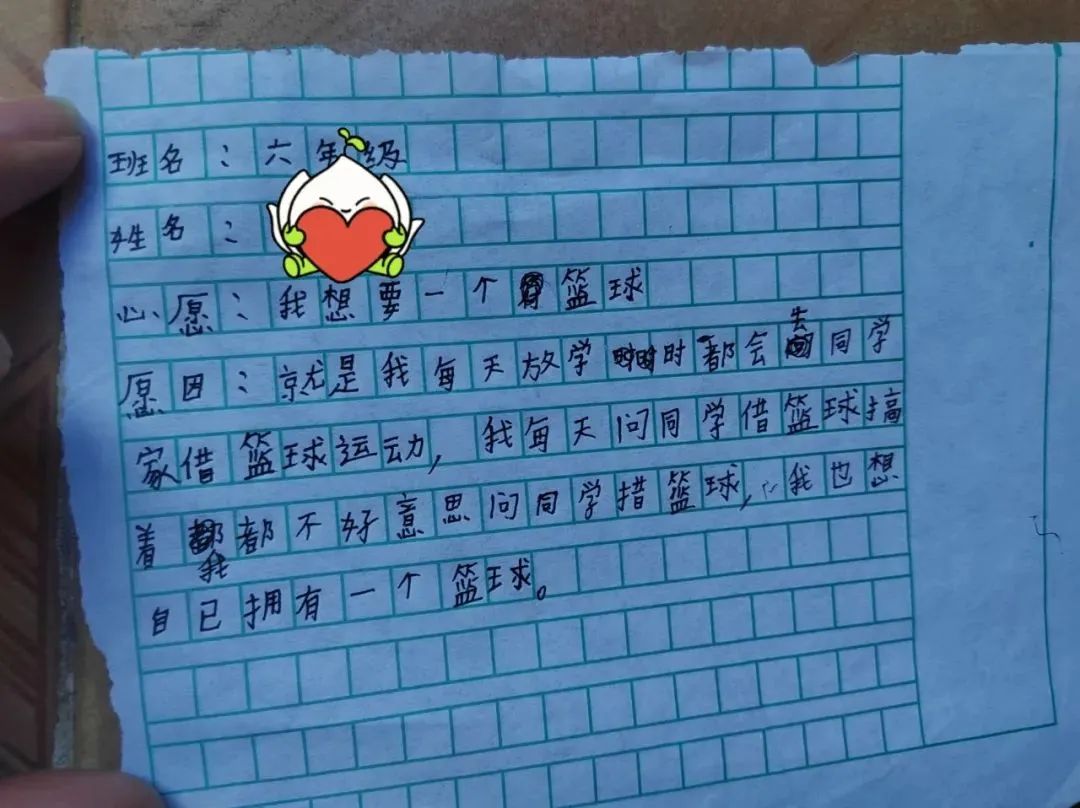 班名：六年级
姓名：
心愿：我想要一个篮球
原因：就是我每天放学时都会去同学
家借篮球运动，我每天问同学借篮球搞
着我都不好意思问同学措篮球，我也想
自已拥有一个篮球。